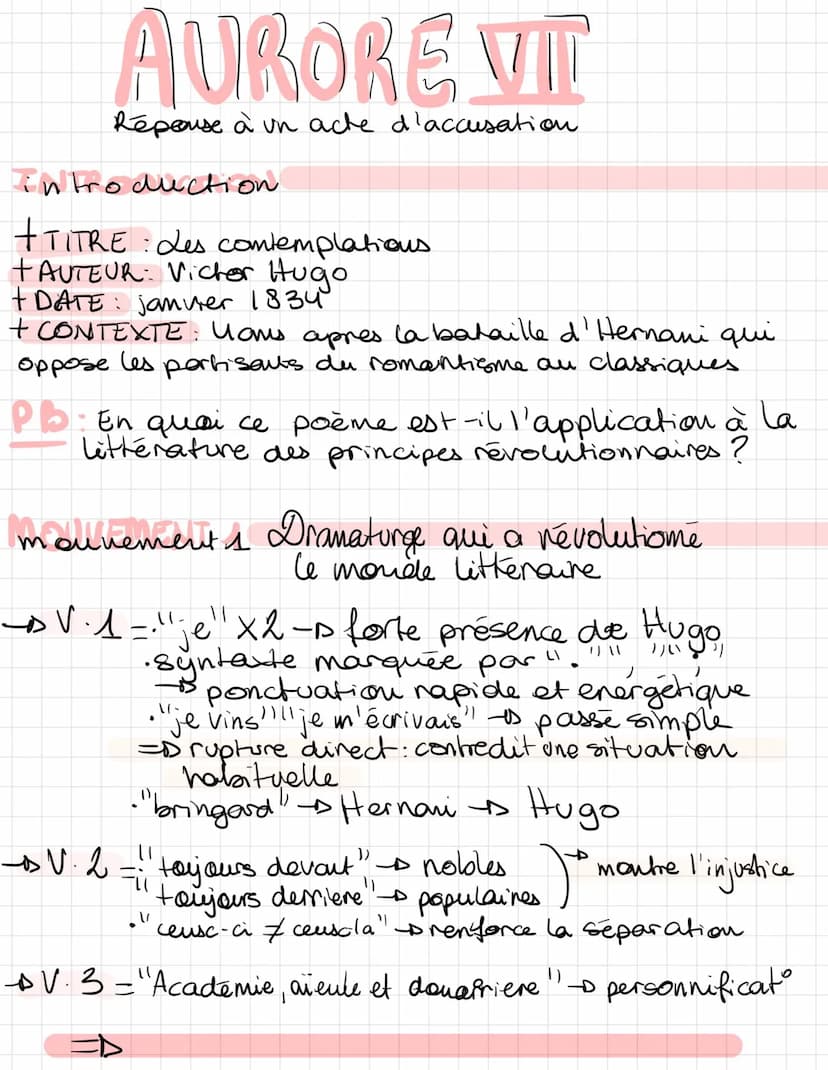 AURORE VII
Réponse à un acte d'accusation
introduction
+ TITRE : Les contemplations
+ AUTEUR : Victor Hugo
+ DATE : janvier 1834
+ CONTEXTE : 4 ans apres la bataille d'Hernani qui
oppose les partisants du romantisme au classiques
PB : En quoi ce poème est-il l'application à la
littérature des principes révolutionnaires ?
mouvement 1 Dramaturge qui a révolutionné
le monde littéraire
→ V.1 = ."je" x2 → forte présence de Hugo
. syntaxe marquée par ".", ",", ";"
→ ponctuation rapide et énergétique
. "je vins" "je m'écrivais" → passé simple
⇒ rupture direct : contredit une situation
habituelle
. "bringand" → Hernani → Hugo
→ V.2 = "toujours devant" → nobles → montre l'injustice
"toujours derriere" → populaires
. "ceusc-ci ≠ ceuscla" → renforce la séparation
→ V.3 = "Académie, aïeule et douairriere" → personnificat°
⇒